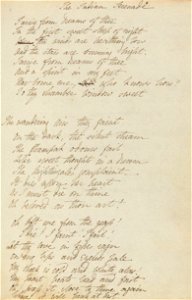 The Indian Serenade
I arise from dreams of thee
In the first sweet sleep of night
the winds are breathing low
And the stars are burning bright.
I arise from dreams of thee
And a spirit in my feet
Has borne me who knows how?
To thy chamber window sweet
The wandering airs they faint
On the dark, the silent stream
The champak odours fail
Like sweet thought in a dream
The nightingale's complaint
It dies upon her heart
As I must die on thine
O beloved as thou art!
O lift me from the grass!
I die, I faint, I fail!
Let thy love in kisses rain
On my lips and eyelids pale
My cheek is cold and white, alas
My heart beats loud and fast